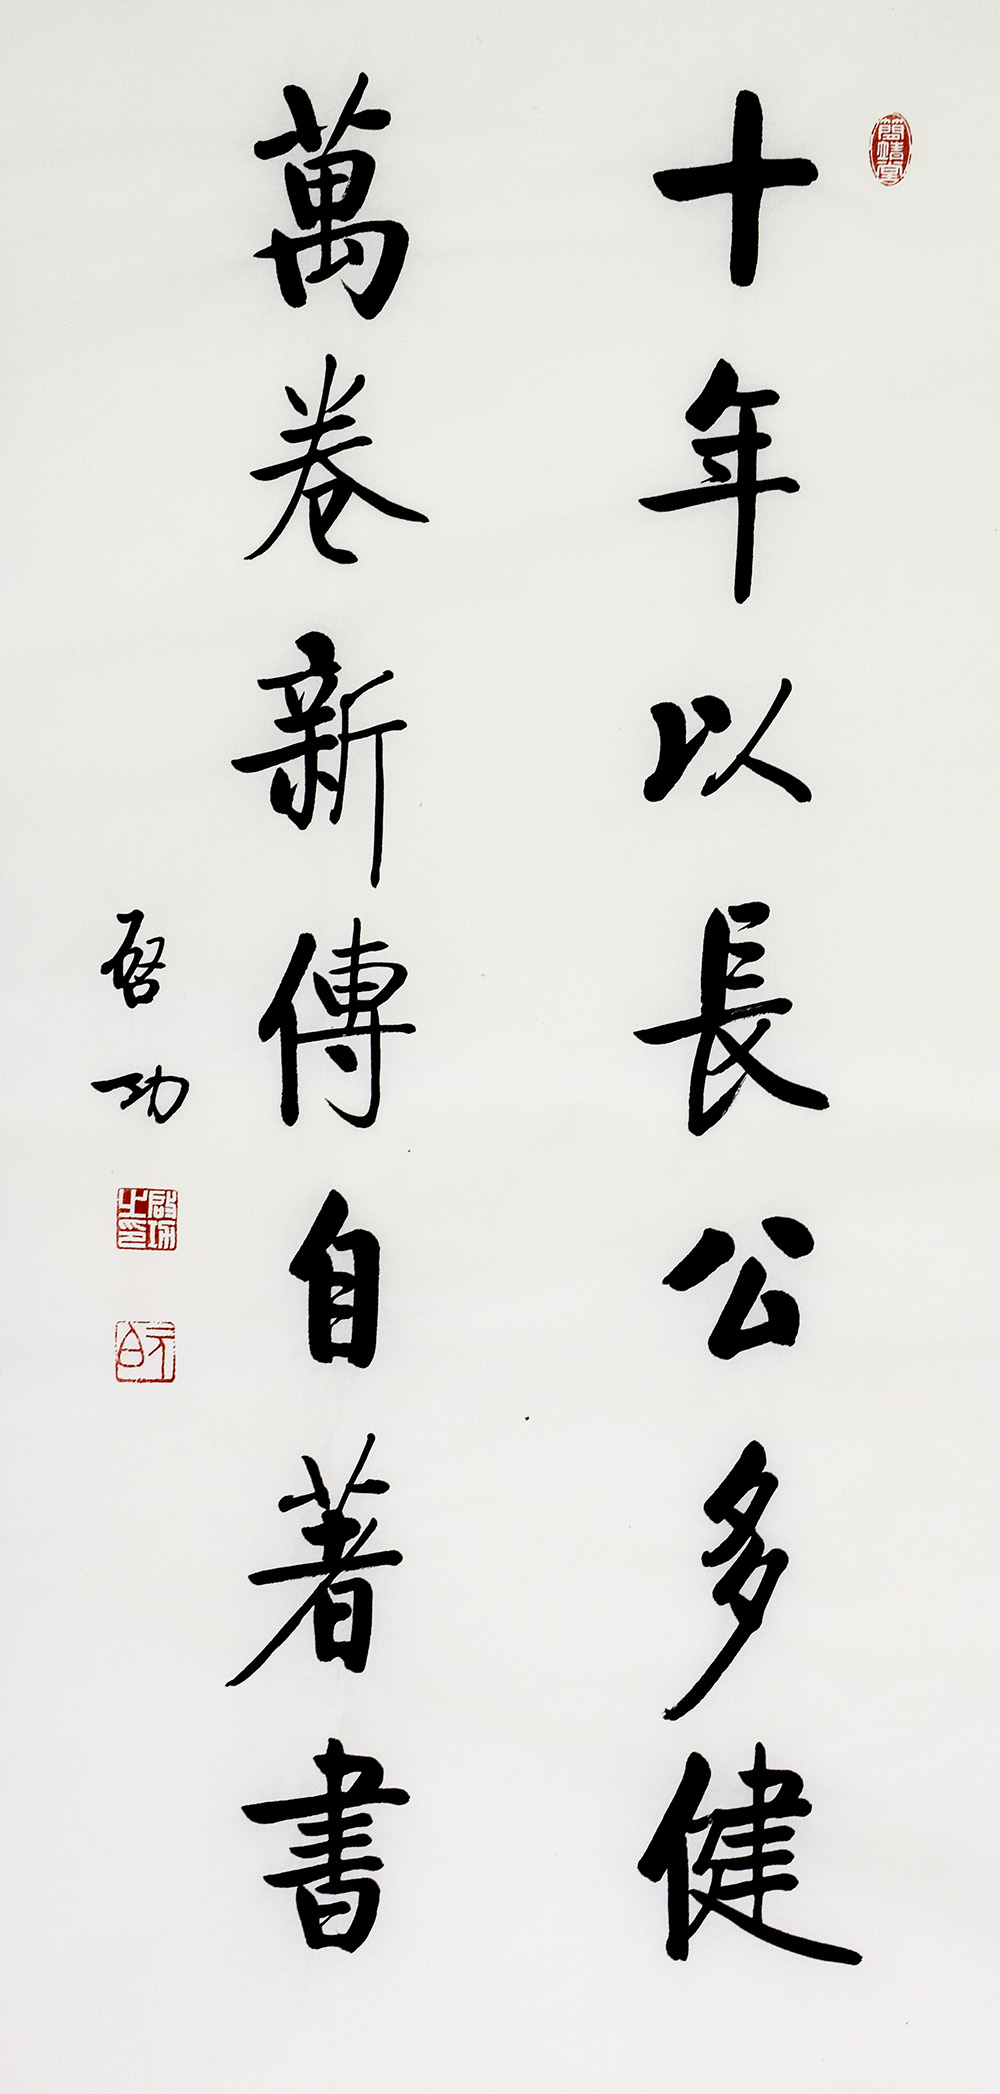 十年以長公多健
萬卷新傳自著書
啓功
簡靖堂
啟功之印
元白